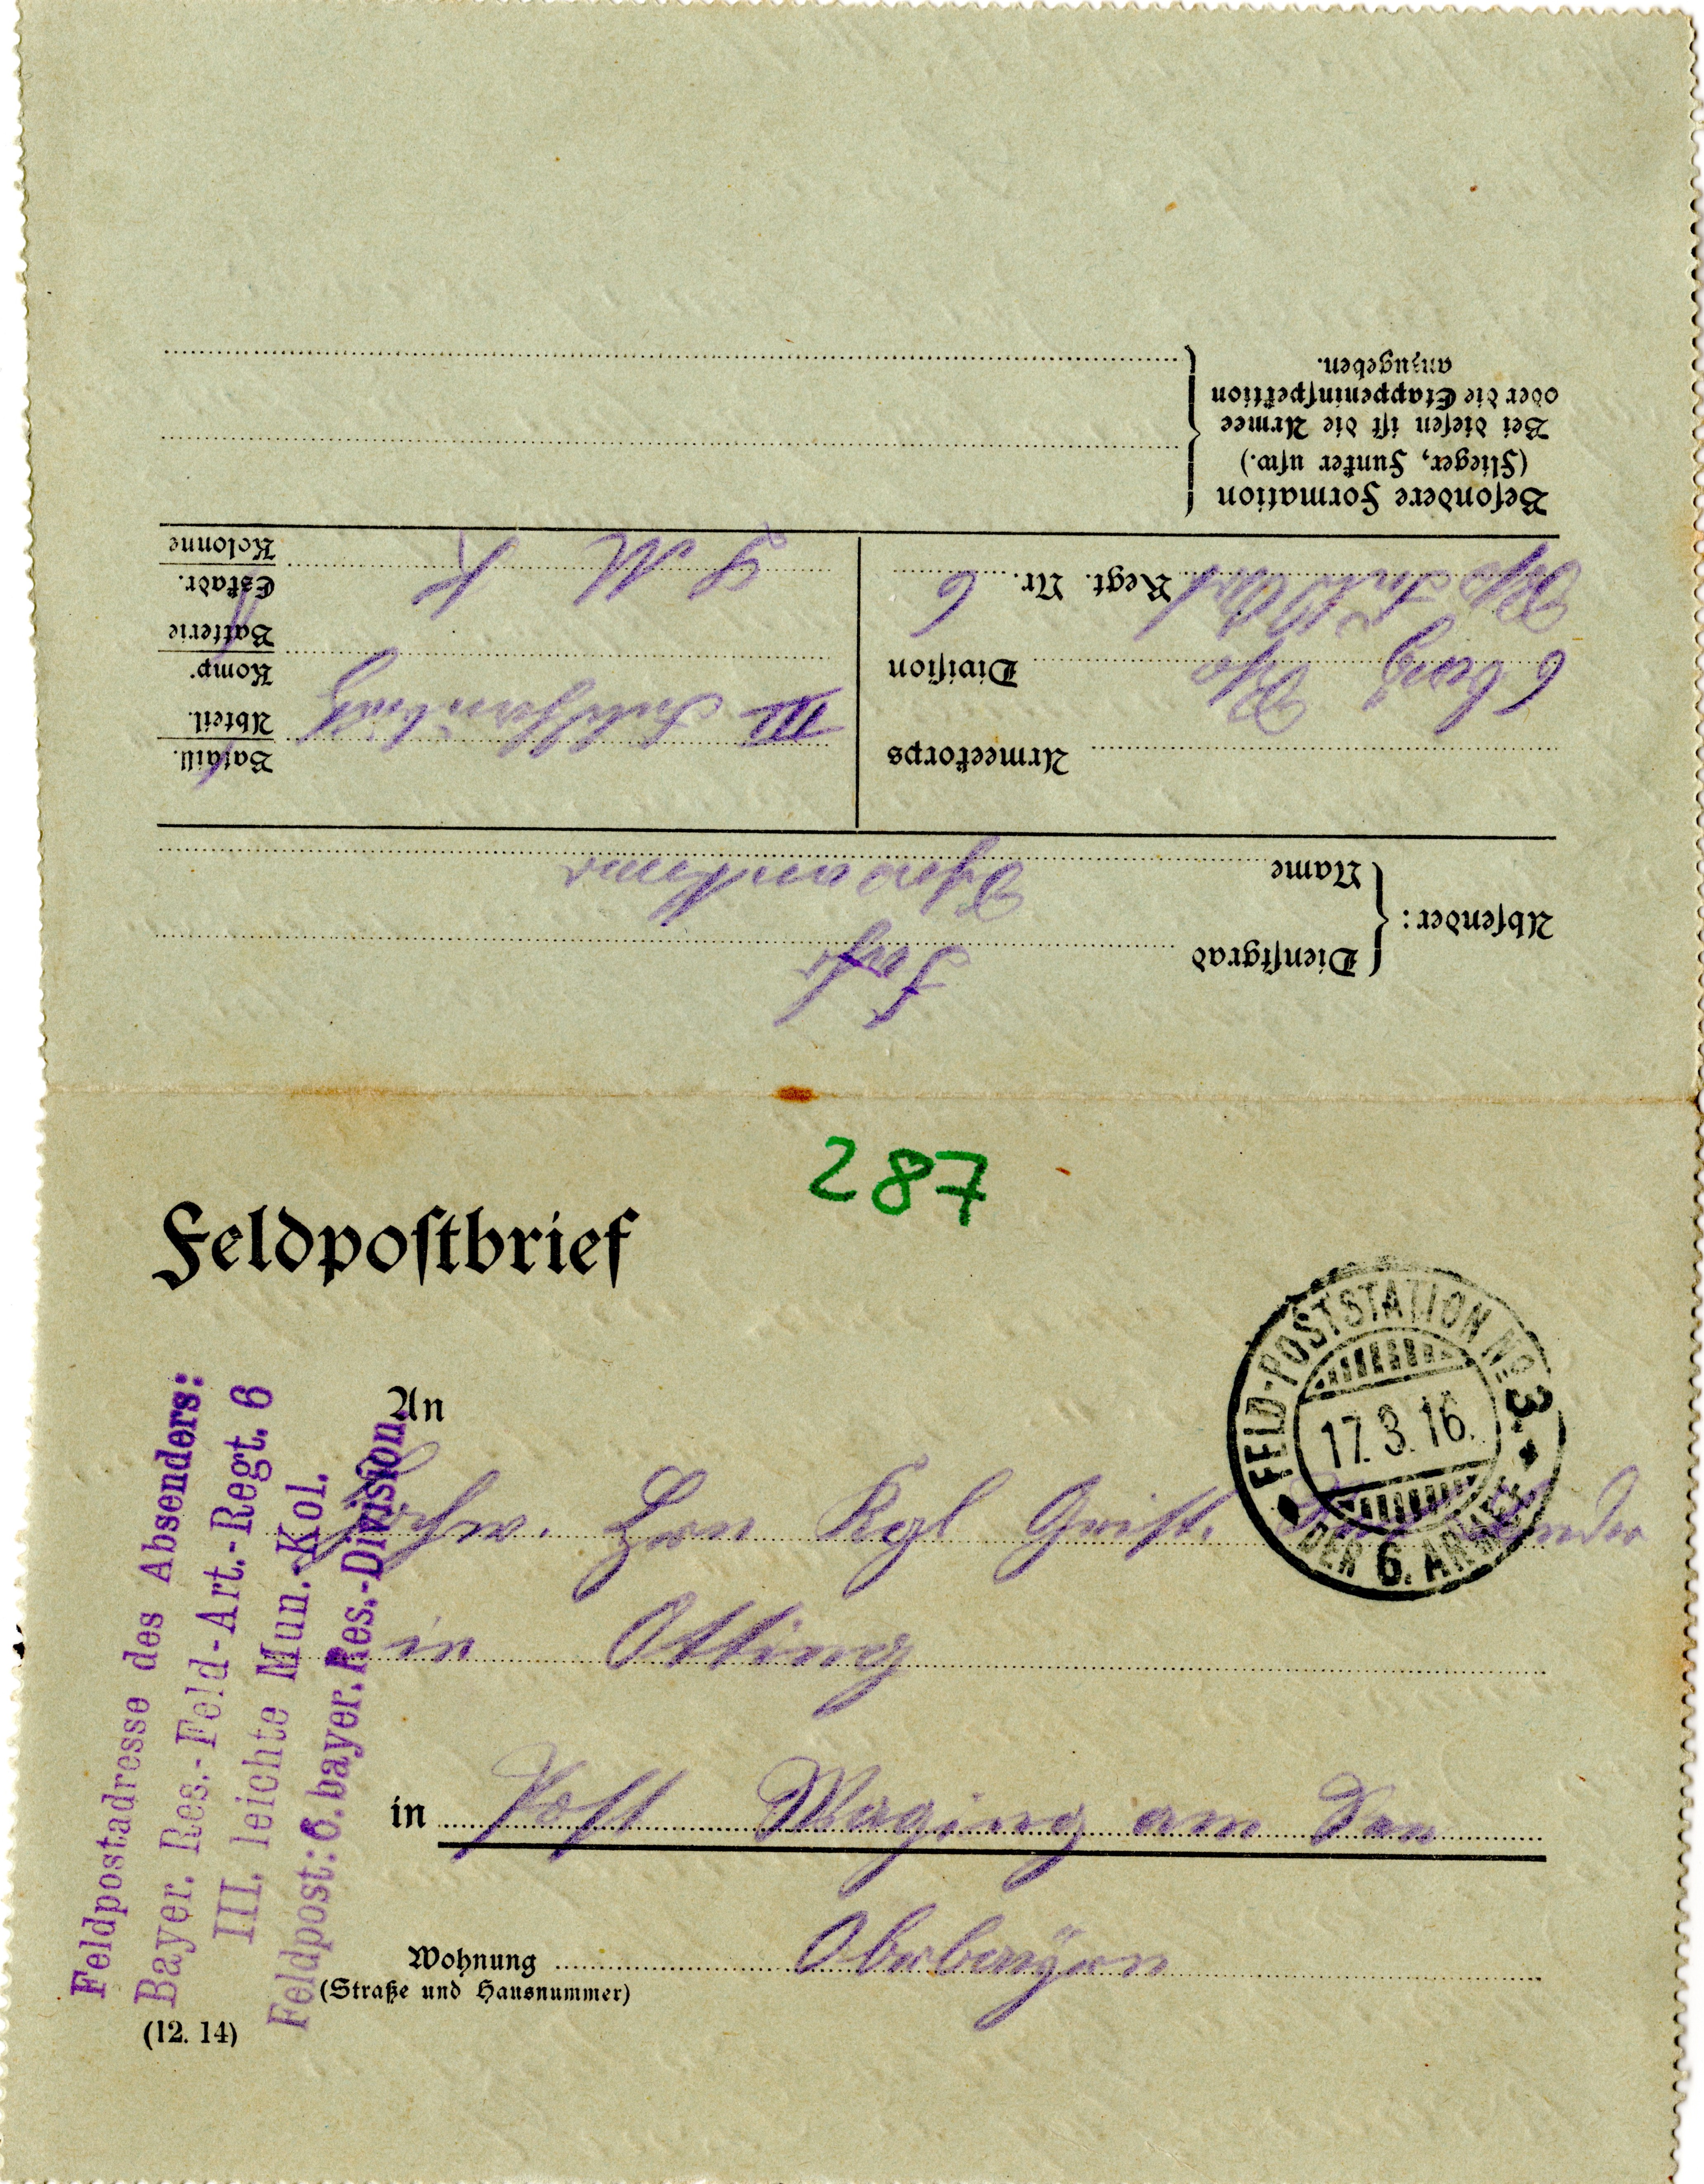 Absender:
Dienstgrad
Name
Armeekorps
6 bay Res Division
Res Feld Art Regt. Nr. 6
Bataill.
III Abteil.
Komp.
Batterie
Eskadr.
L M K Kolonne
Besondere Formation
(Flieger, Funker usw.)
Bei diesen ist die Armee
oder die Etappeninspektion
anzugeben.
287
Feldpostbrief
FELD-POSTSTATION No. 3.
17.3.16.
DER 6. ARMEE
Feldpostadresse des Absenders:
Bayer. Res.-Feld-Art.-Regt. 6
III. leichte Mun.-Kol.
Feldpost: 6. bayer. Res.-Division.
An
Hochw. Hrn Kgl Geistl.
in Otting
in Post Waging am See
Wohnung Oberbayern
(Straße und Hausnummer)
(12. 14)